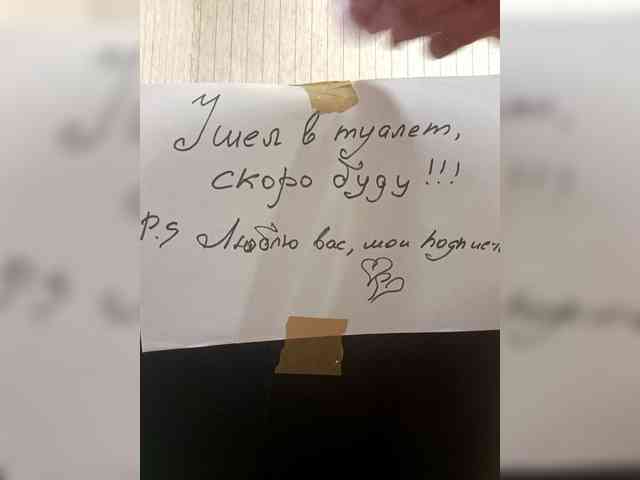 Ушел в туалет,
скоро буду!!!
P.S Люблю вас, мои